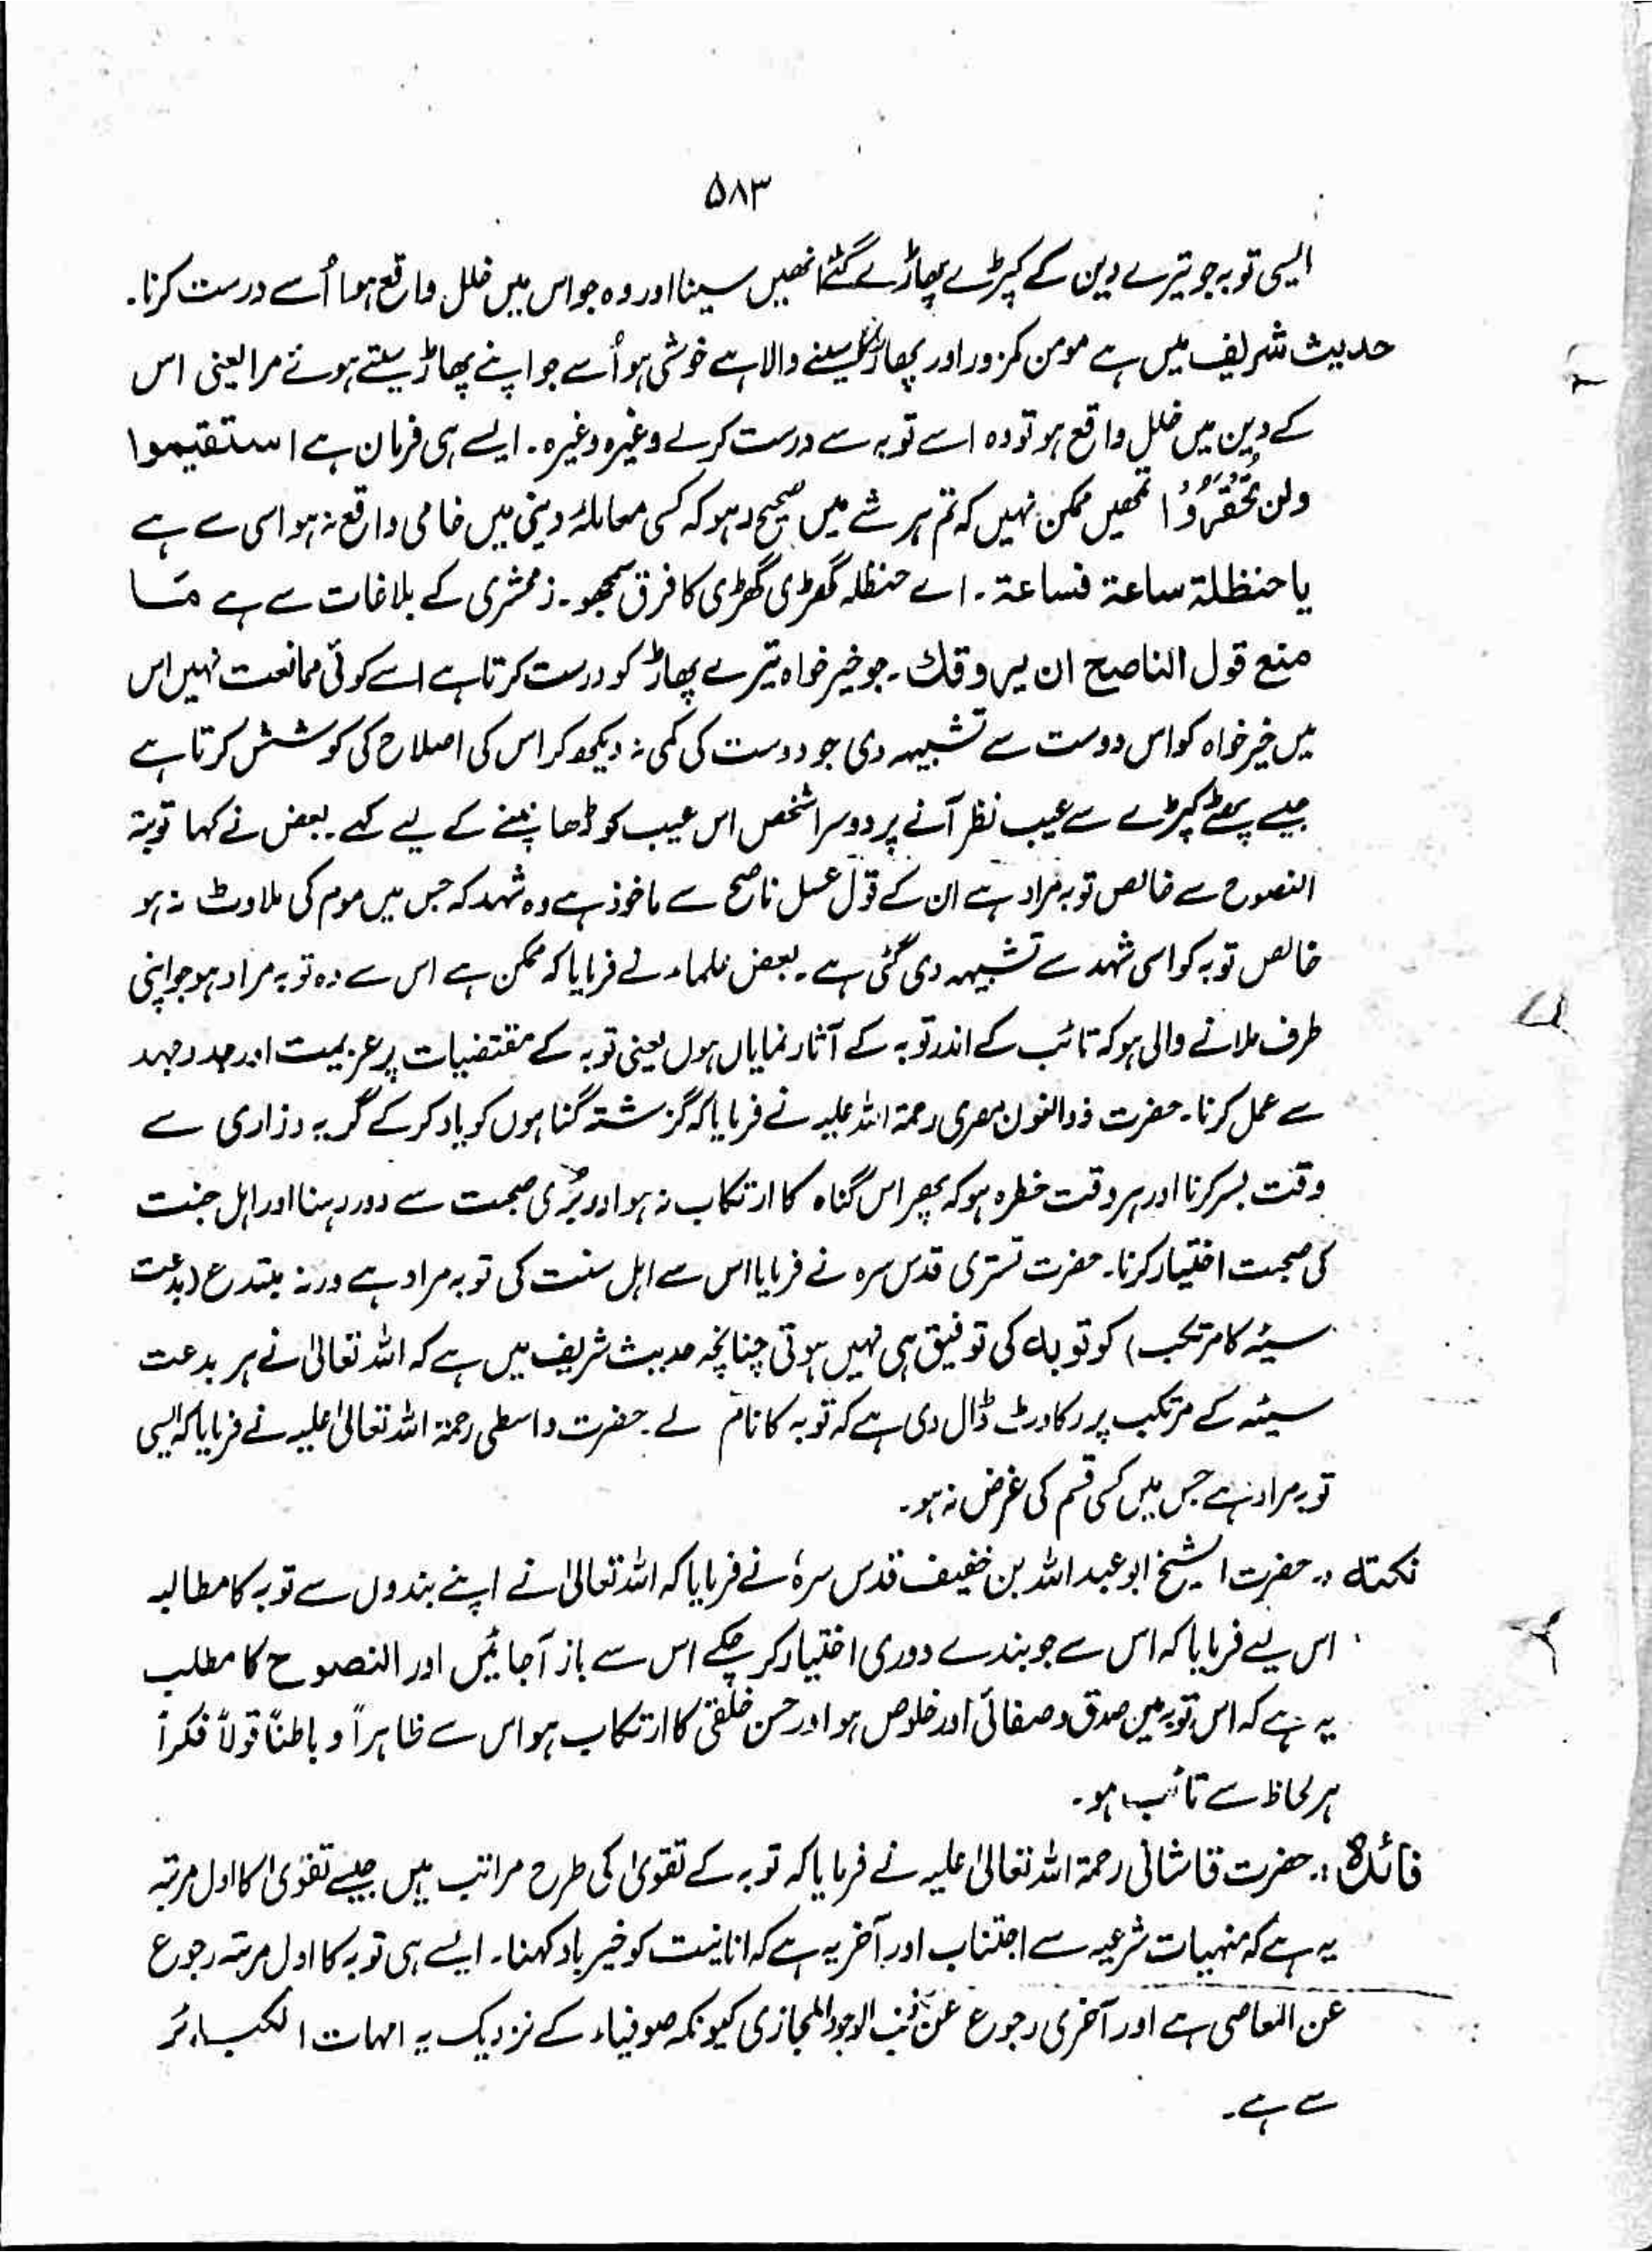 ۵۸۳
ایسی توبہ جو تیرے دین کے کپڑے پھاڑے گئے انھیں سینا اور وہ جو اس میں خلل واقع ہوا اُسے درست کرنا۔
حدیث شریف میں ہے مومن کمزور اور پھاڑ کر سینے والا ہے خوشی ہو اُسے جو اپنے پھاڑ سیتے ہوئے مرا یعنی اس
کے دین میں خلل واقع ہو تو وہ اسے توبہ سے درست کرلے وغیرہ وغیرہ۔ ایسے ہی فرمان ہے استقیموا
ولن تمھیں ممکن نہیں کہ تم ہر شے میں صحیح رہو کہ کسی معاملۂ دینی میں خامی واقع نہ ہو اسی سے ہے
یا حنظلة ساعة فساعة۔ اے حنظلہ گھڑی گھڑی کا فرق سمجھو۔ زمخشری کے بلاغات سے ہے مَا
منع قول الناصح ان یروقك۔ جو خیر خواہ تیرے پھاڑ کو درست کرتا ہے اسے کوئی ممانعت نہیں اس
میں خیر خواہ کو اس دوست سے تشبیہہ دی جو دوست کی کمی نہ دیکھ کر اس کی اصلاح کی کوشش کرتا ہے
جیسے پھٹے کپڑے سے عیب نظر آنے پر دوسرا شخص اس عیب کو ڈھانپنے کے لیے کہے۔ بعض نے کہا توبۃ
النصوح سے خالص توبہ مراد ہے ان کے قول عسل ناصح سے ماخوذ ہے وہ شہد کہ جس میں موم کی ملاوٹ نہ ہو
خالص توبہ کو اسی شہد سے تشبیہہ دی گئی ہے۔ بعض علماء نے فرمایا کہ ممکن ہے اس سے وہ توبہ مراد ہو جو اپنی
طرف ملانے والی ہو کہ تائب کے اندر توبہ کے آثار نمایاں ہوں یعنی توبہ کے مقتضیات پر عزیمت اور جدوجہد
سے عمل کرنا۔ حضرت ذوالنون مصری رحمۃ اللہ علیہ نے فرمایا کہ گزشتہ گناہوں کو یاد کر کے گریہ و زاری سے
وقت بسر کرنا اور ہر وقت خطرہ ہو کہ پھر اس گناہ کا ارتکاب نہ ہو اور بُری صحبت سے دور رہنا اور اہل جنت
کی صحبت اختیار کرنا۔ حضرت تستری قدس سرہ نے فرمایا اس سے اہل سنت کی توبہ مراد ہے ورنہ مبتدع (بدعت
سیئہ کا مرتکب) کو توبہ کی توفیق ہی نہیں ہوتی چنانچہ حدیث شریف میں ہے کہ اللہ تعالیٰ نے ہر بدعت
سیئہ کے مرتکب پر رکاوٹ ڈال دی ہے کہ توبہ کا نام لے۔ حضرت واسطی رحمۃ اللہ تعالیٰ علیہ نے فرمایا کہ ایسی
توبہ مراد ہے جس میں کسی قسم کی غرض نہ ہو۔
نکتہ :۔ حضرت الشیخ ابو عبداللہ بن خفیف قدس سرہٗ نے فرمایا کہ اللہ تعالیٰ نے اپنے بندوں سے توبہ کا مطالبہ
اس لیے فرمایا کہ اس سے جو بندے دوری اختیار کر چکے اس سے باز آجائیں اور النصوح کا مطلب
یہ ہے کہ اس توبہ میں صدق و صفائی اور خلوص ہو اور حسن خلقی کا ارتکاب ہو اس سے ظاہراً و باطناً قولاً فکراً
ہر لحاظ سے تائب ہو۔
فائدہ :۔ حضرت قاشانی رحمۃ اللہ تعالیٰ علیہ نے فرمایا کہ توبہ کے تقویٰ کی طرح مراتب ہیں جیسے تقویٰ کا اول مرتبہ
یہ ہے کہ منہیات شرعیہ سے اجتناب اور آخر یہ ہے کہ انانیت کو خیرباد کہنا۔ ایسے ہی توبہ کا اول مرتبہ رجوع
عن المعاصی ہے اور آخری رجوع عن ذنب الوجود المجازی کیونکہ صوفیاء کے نزدیک یہ امہات الکبائر
سے ہے۔